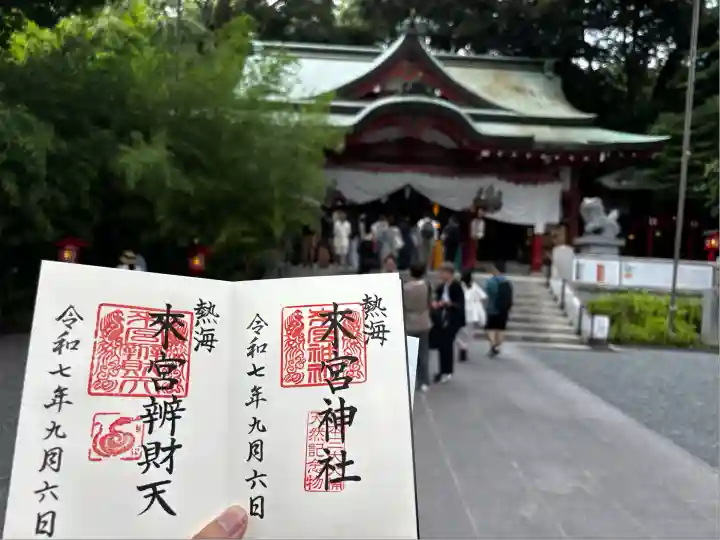 熱海
來宮神社
令和七年九月六日
天然記念物
熱海
來宮辨財天
令和七年九月六日